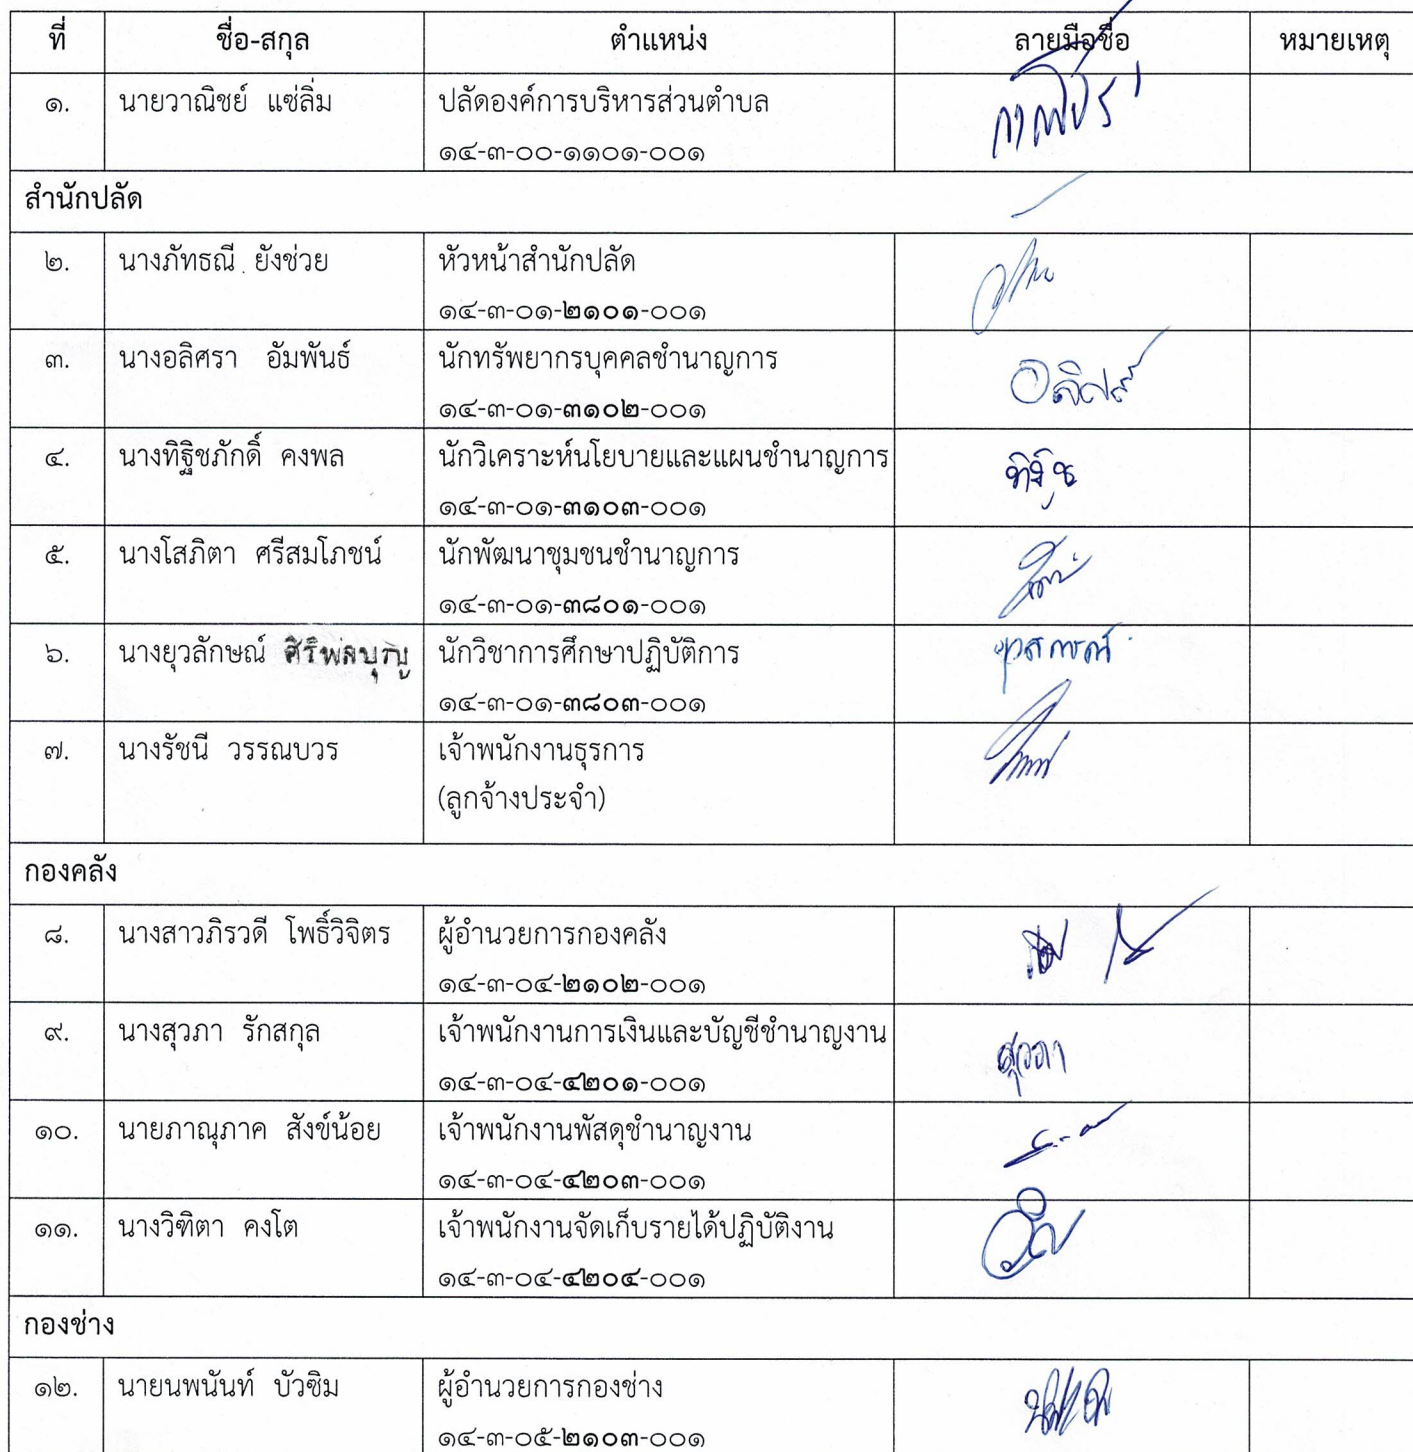 ที่ ชื่อ-สกุล ตำแหน่ง ลายมือชื่อ หมายเหตุ
๑. นายวาณิชย์ แซ่ลิ่ม ปลัดองค์การบริหารส่วนตำบล
๑๔-๓-๐๐-๑๑๐๑-๐๐๑
สำนักปลัด
๒. นางภัทธณี ยังช่วย หัวหน้าสำนักปลัด
๑๔-๓-๐๑-๒๑๐๑-๐๐๑
๓. นางอลิศรา อัมพันธ์ นักทรัพยากรบุคคลชำนาญการ
๑๔-๓-๐๑-๓๑๐๒-๐๐๑
๔. นางทิฐิชภักดิ์ คงพล นักวิเคราะห์นโยบายและแผนชำนาญการ
๑๔-๓-๐๑-๓๑๐๓-๐๐๑
๕. นางโสภิตา ศรีสมโภชน์ นักพัฒนาชุมชนชำนาญการ
๑๔-๓-๐๑-๓๘๐๑-๐๐๑
๖. นางยุวลักษณ์ ศิริพลบุญ นักวิชาการศึกษาปฏิบัติการ
๑๔-๓-๐๑-๓๘๐๓-๐๐๑
๗. นางรัชนี วรรณบวร เจ้าพนักงานธุรการ
(ลูกจ้างประจำ)
กองคลัง
๘. นางสาวภิรวดี โพธิ์วิจิตร ผู้อำนวยการกองคลัง
๑๔-๓-๐๔-๒๑๐๒-๐๐๑
๙. นางสุวภา รักสกุล เจ้าพนักงานการเงินและบัญชีชำนาญงาน สุวภา
๑๔-๓-๐๔-๔๒๐๑-๐๐๑
๑๐. นายภาณุภาค สังข์น้อย เจ้าพนักงานพัสดุชำนาญงาน
๑๔-๓-๐๔-๔๒๐๓-๐๐๑
๑๑. นางวิฑิตา คงโต เจ้าพนักงานจัดเก็บรายได้ปฏิบัติงาน
๑๔-๓-๐๔-๔๒๐๔-๐๐๑
กองช่าง
๑๒. นายนพนันท์ บัวซิม ผู้อำนวยการกองช่าง
๑๔-๓-๐๕-๒๑๐๓-๐๐๑